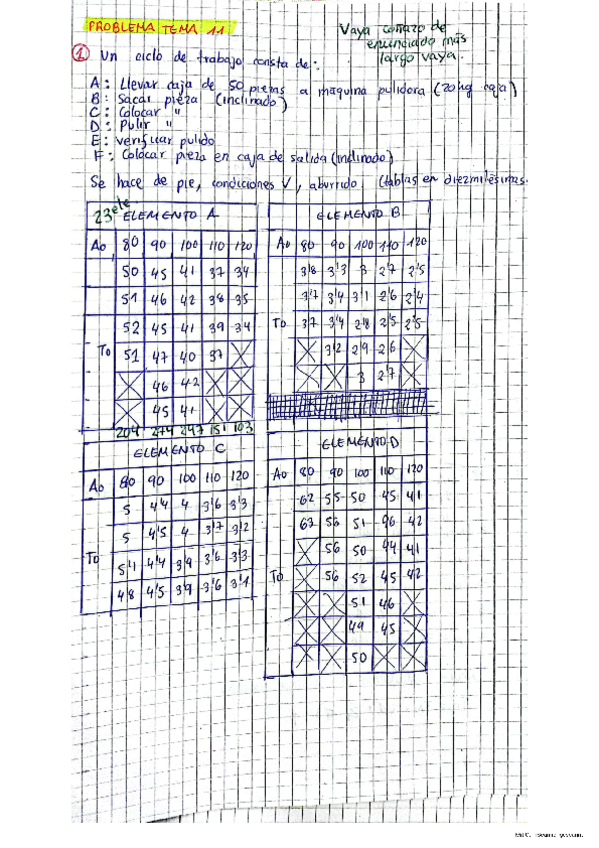 PROBLEMA TEMA 11
Vaya coñazo de
enunciado más
largo vaya.
① Un ciclo de trabajo consta de:
A: Llevar caja de 50 piezas a maquina pulidora (20 kg caja)
B: Sacar pieza (inclinado)
C: Colocar "
D: Pulir "
E: verificar pulido
F: Colocar pieza en caja de salida (inclinado)
Se hace de pie, condiciones V, aburrido (tablas en diezmilésimas.
23 ele
ELEMENTO A
Ao 80 90 100 110 120
50 45 41 37 34
51 46 42 38 35
52 45 41 39 34
To 51 47 40 37 X
X 46 42 X X
X 45 41 X X
204 274 247 151 103
ELEMENTO B
Ao 80 90 100 110 120
3'8 3'3 3 2'7 2'5
3'7 3'4 3'1 2'6 2'4
To 3'7 3'4 2'8 2'5 2'5
X 3'2 2'9 2'6 X
X X 3 2'7 X
ELEMENTO C
Ao 80 90 100 110 120
5 4'4 4 3'6 3'3
5 4'5 4 3'7 3'2
To 5'1 4'4 3'9 3'6 3'3
4'8 4'5 3'9 3'6 3'1
ELEMENTO D
Ao 80 90 100 110 120
62 55 50 45 41
63 56 51 46 42
X 56 50 44 41
To X 56 52 45 42
X X 51 46 X
X X 49 45 X
X X 50 X X